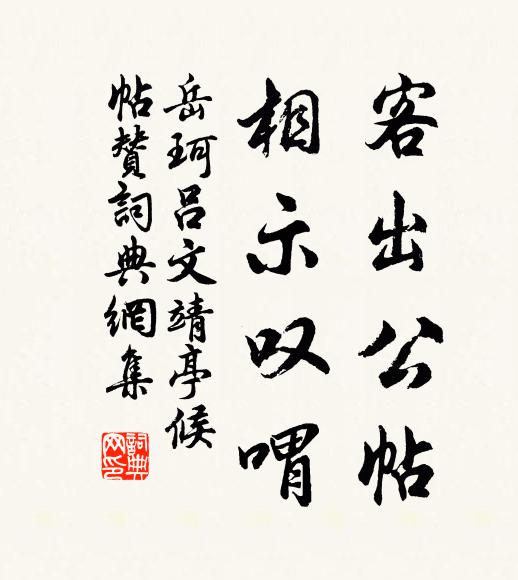 客出公帖
相示叹喟
岳珂吕文靖亭候
帖赞詞典網集
詞典网印